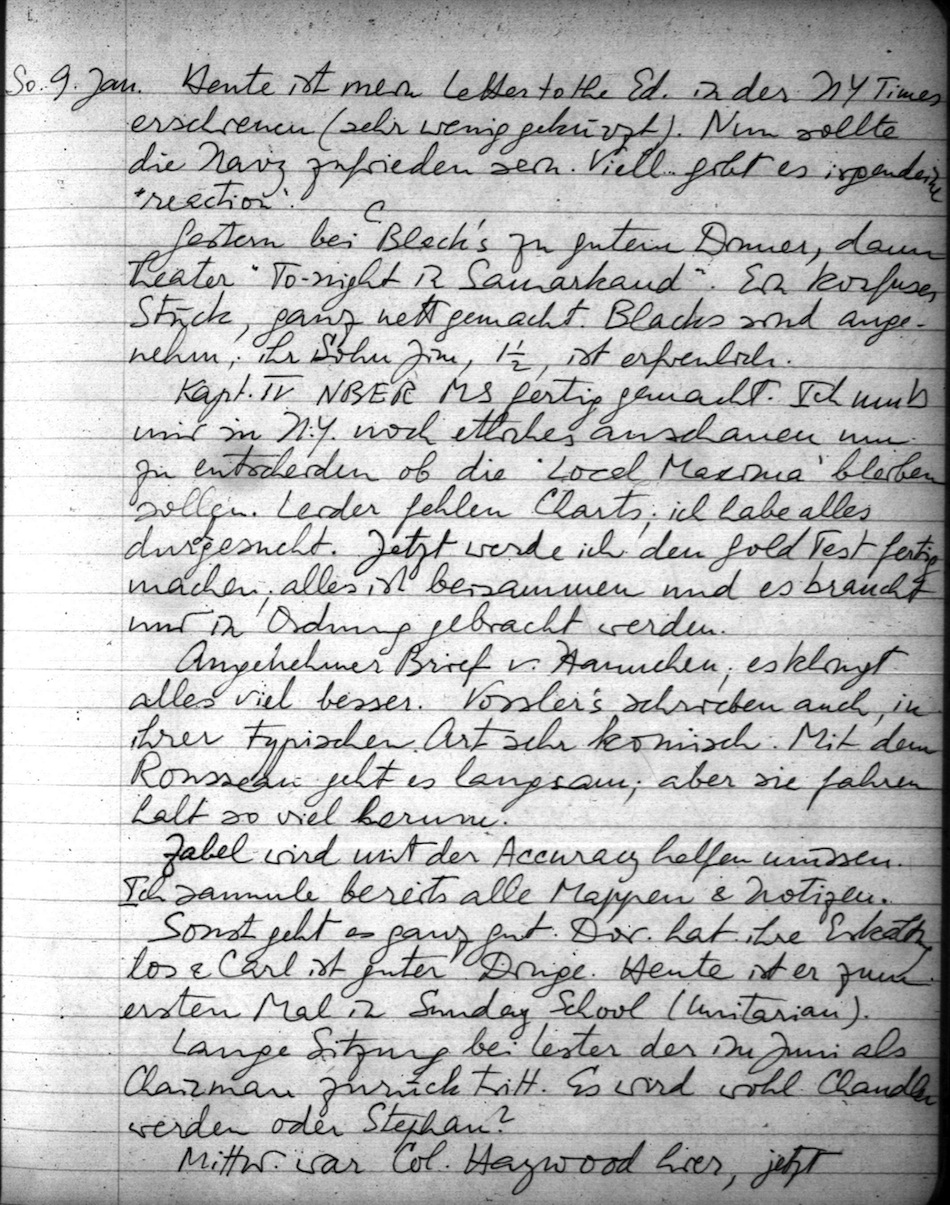 So. 9. Jan. Heute ist mein Letter to the Ed. in der NY Times
erschienen (sehr wenig gekürzt). Nun sollte
die Navy zufrieden sein. Viell. gibt es irgendeine
"reaction".
Gestern bei C Black's zu gutem Dinner, dann
theater "To-night in Samarkand". Ein konfuses
Stück, ganz nett gemacht. Blacks sind ange-
nehm; ihr Sohn Jim, 1½, ist erfreulich.
Kapt. IV NBER MS fertig gemacht. Ich muß
mir in N.Y. noch etliches anschauen um
zu entscheiden ob die 'Local Maxima' bleiben
sollen. Leider fehlen Charts; ich habe alles
durgesucht. Jetzt werde ich den Gold Test fertig
machen; alles ist beisammen und es braucht
nur in Ordnung gebracht werden.
Angenehmer Brief v. Hannchen; es klingt
alles viel besser. Vossler's schrieben auch, in
ihrer typischen Art sehr komisch. Mit dem
Rousseau geht es langsam; aber sie fahren
halt so viel herum.
Zabel wird mit der Accuracy helfen müssen.
Ich sammle bereits alle Mappen & Notizen.
Sonst geht es ganz gut. Dor. hat ihre
los & Carl ist guter Dinge. Heute ist er zum
ersten Mal in Sunday School (Unitarian).
Lange Sitzung bei Lester der im Juni als
Chairman zurücktritt. Es wird wohl Chandler
werden oder Stephan?
Mittw. war Col. Haywood hier, jetzt